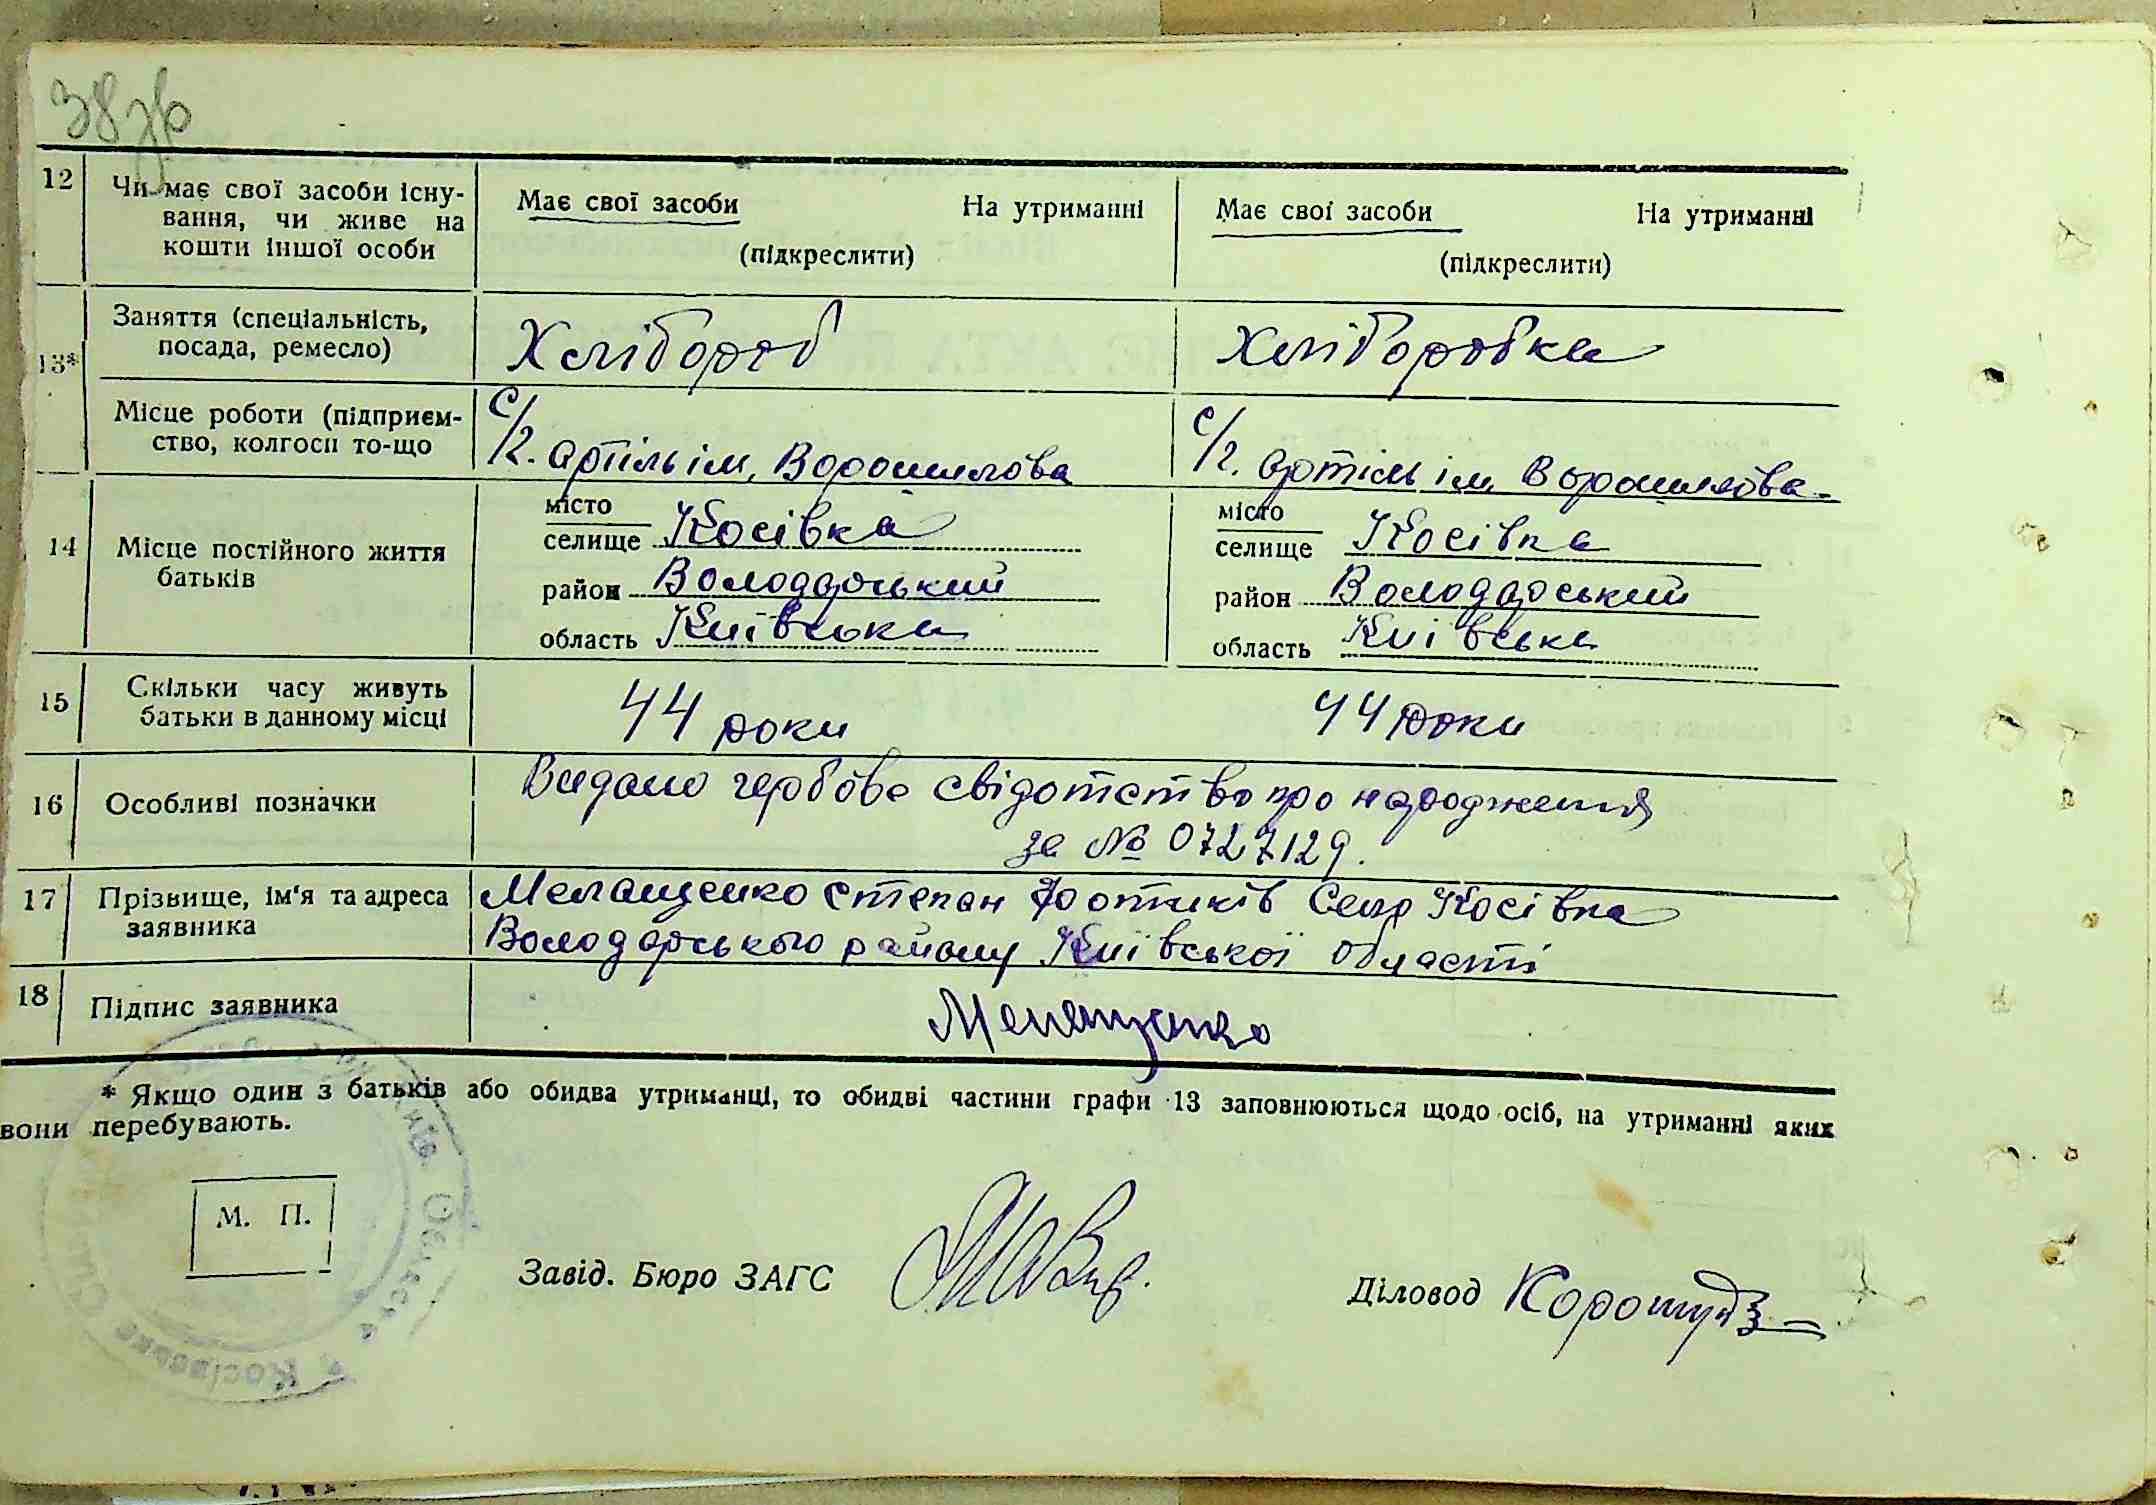 38 зв
12 Чи має свої засоби існу- Має свої засоби На утриманні Має свої засоби На утриманні
вання, чи живе на
кошти іншої особи (підкреслити) (підкреслити)
13* Заняття (спеціальність, Хлібороб Хліборобка
посада, ремесло)
Місце роботи (підприєм- с/г. артіль ім. Ворошилова с/г. артіль ім. Ворошилова
ство, колгосп то-що
14 Місце постійного життя місто селище Косівка місто селище Косівка
батьків район Володарський район Володарський
область Київська область Київська
15 Скільки часу живуть 44 роки 44 роки
батьки в данному місці
16 Особливі позначки Видано гербове свідотство про народження
за № 0727129.
17 Прізвище, ім'я та адреса Мелащенко Степан Село Косівка
заявника Володарського району Київської області
18 Підпис заявника Мелащенко
* Якщо один з батьків або обидва утриманці, то обидві частини графи 13 заповнюються щодо осіб, на утриманні яких
вони перебувають.
М. П.
Завід. Бюро ЗАГС Діловод